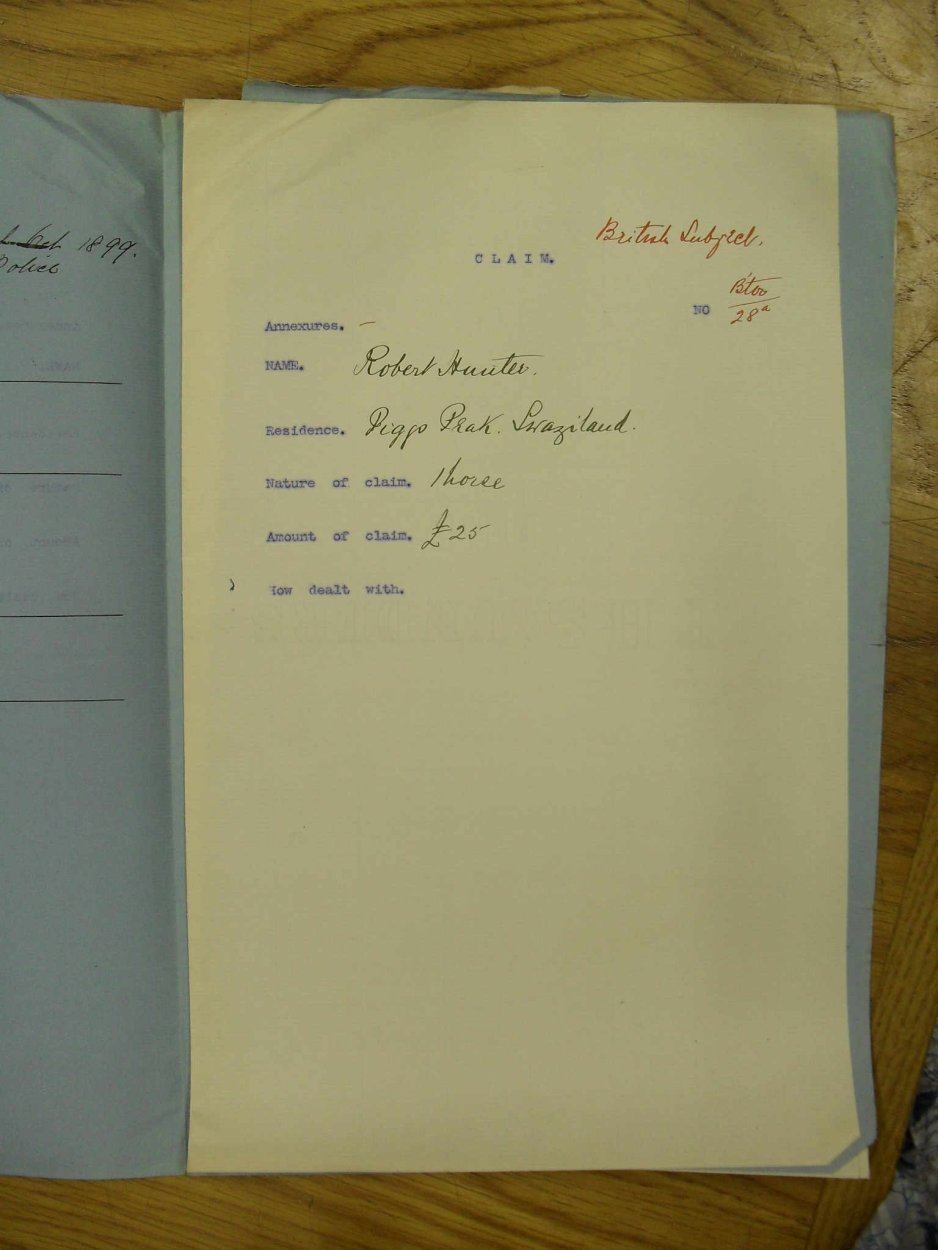 Oct 1899.
Police
British Subject.
CLAIM.
B'ton
NO 28a
Annexures. —
NAME. Robert Hunter.
Residence. Piggs Peak. Swaziland.
Nature of claim. 1 horse
Amount of claim. £25
How dealt with.